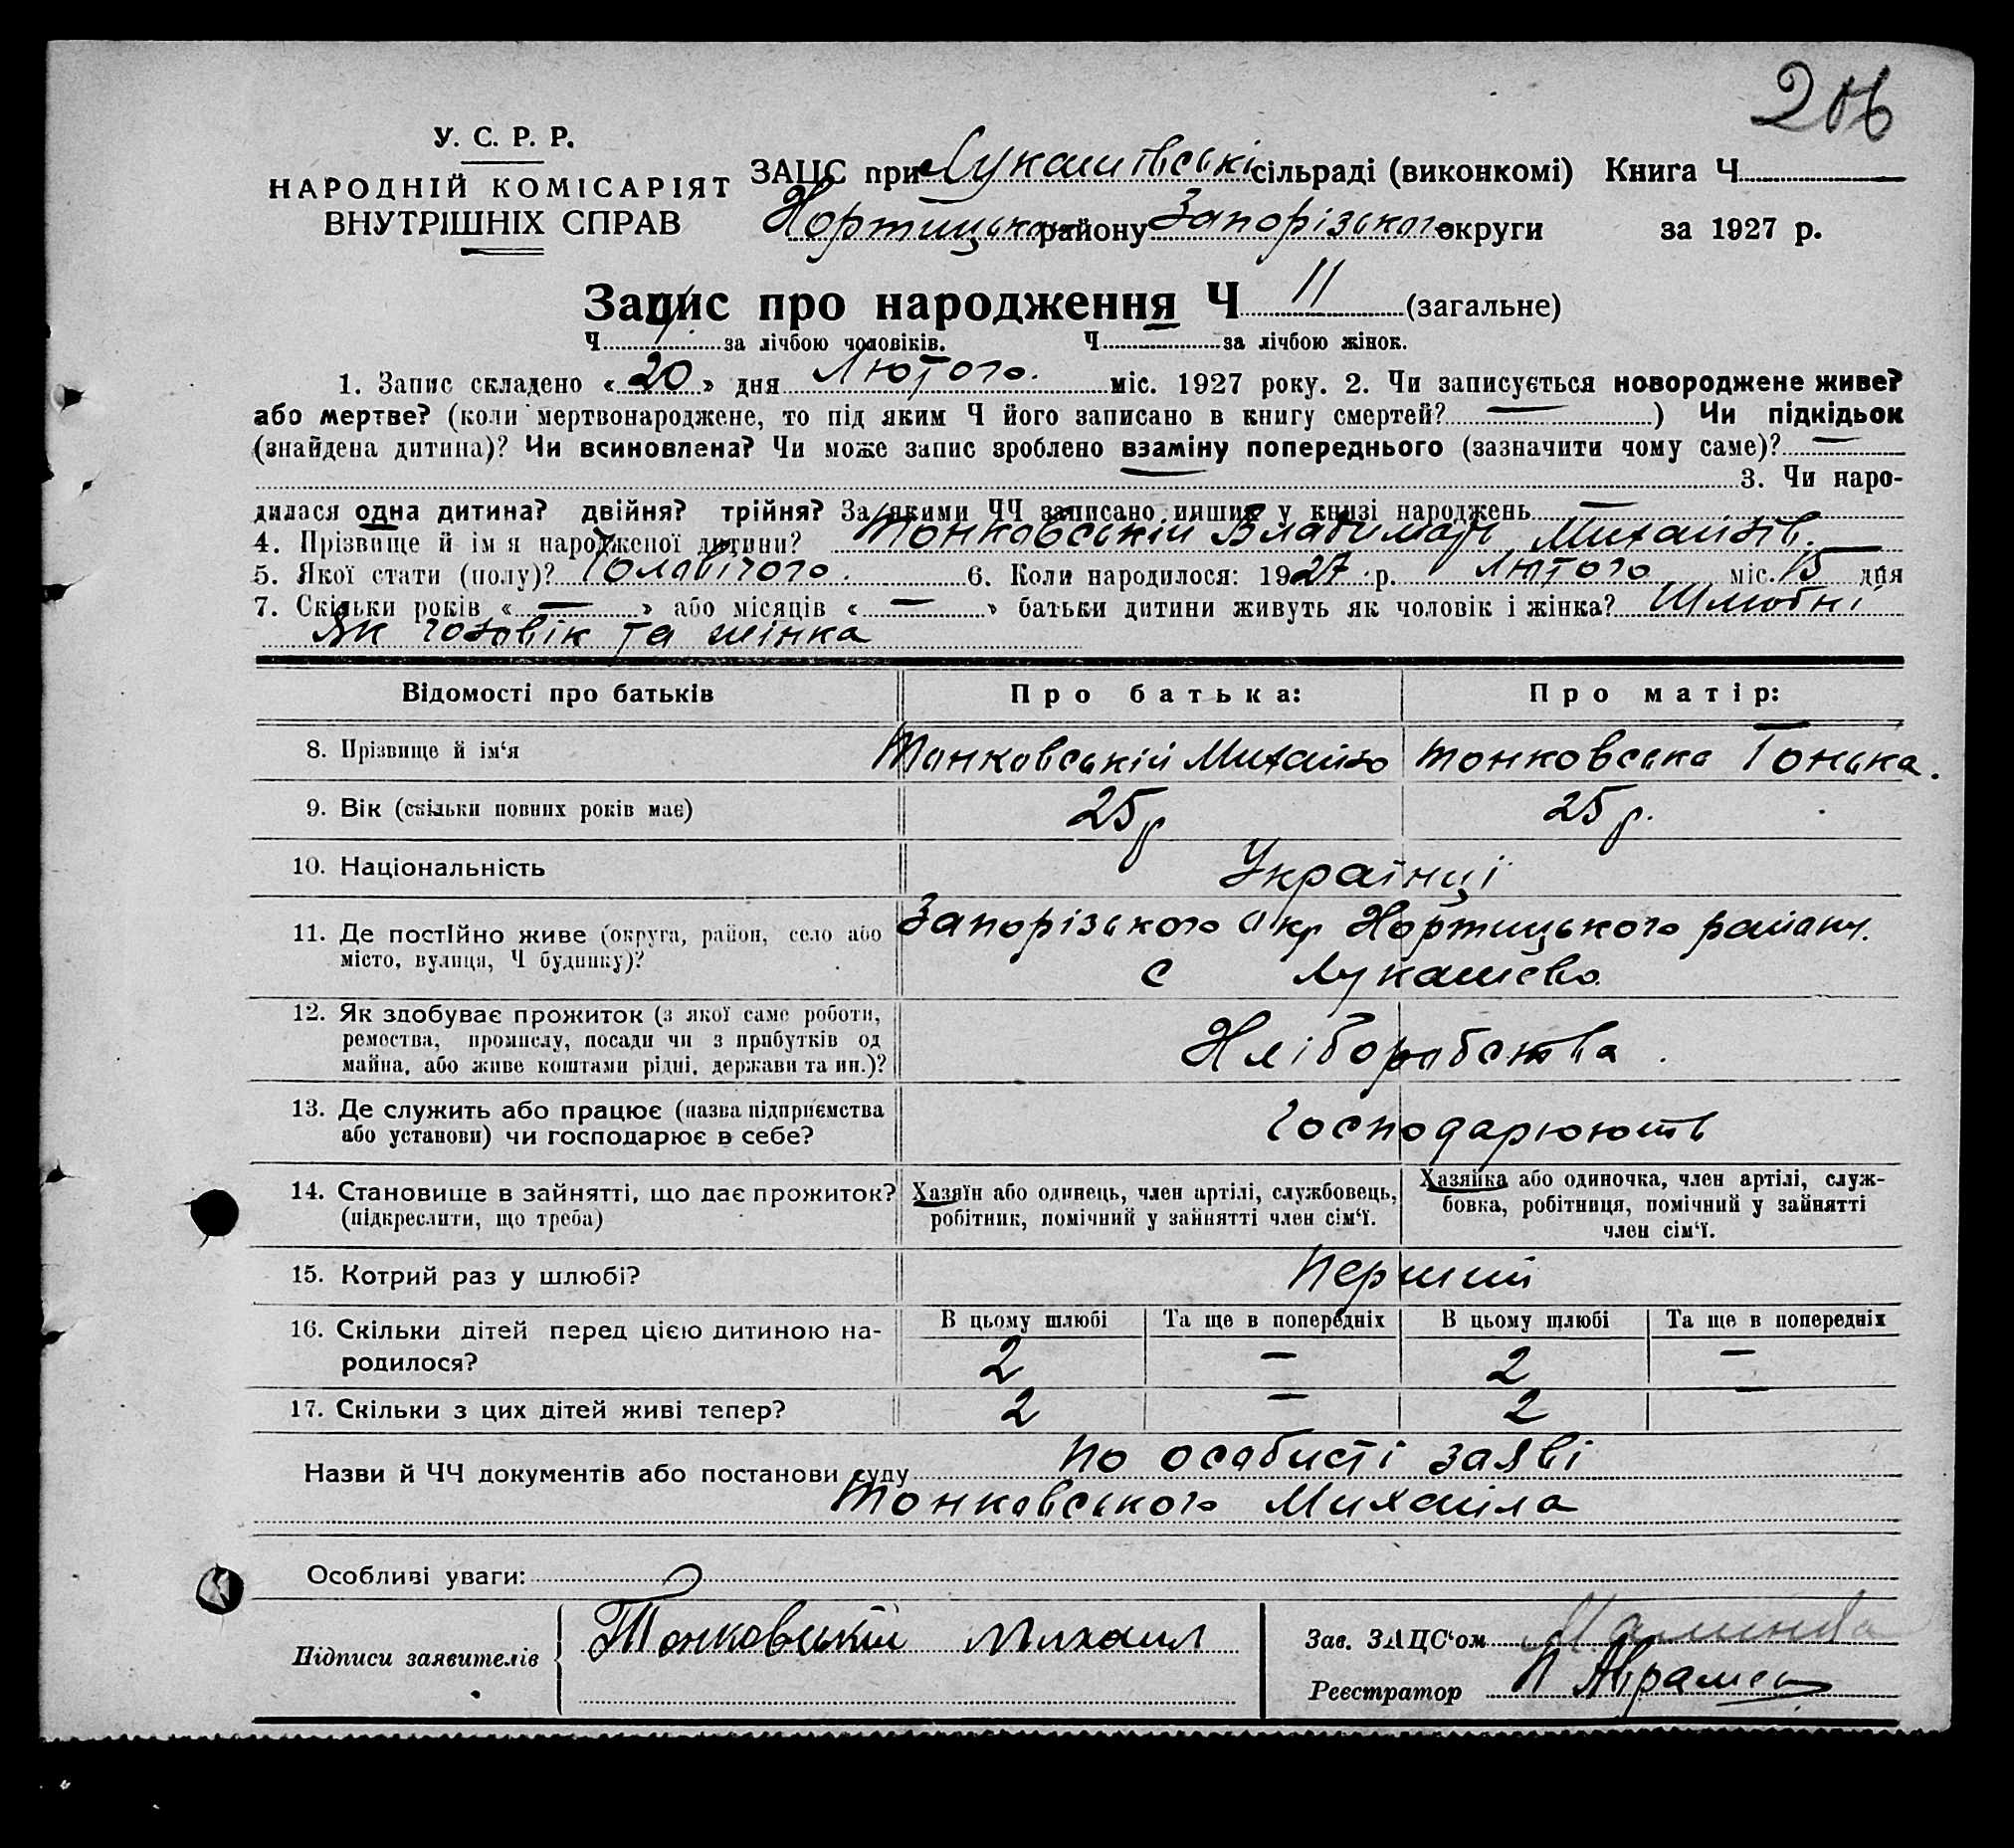 206
У. С. Р. Р.
НАРОДНІЙ КОМІСАРІЯТ
ВНУТРІШНІХ СПРАВ
ЗАЦС при Лукашівські сільраді (виконкомі) Книга Ч.
Хортицького району Запорізького округи за 1927 р.
Запис про народження Ч 11 (загальне)
Ч. за лічбою чоловіків. Ч. за лічбою жінок.
1. Запис складено « 20 » дня Лютого. міс. 1927 року. 2. Чи записується новороджене живе?
або мертве? (коли мертвонароджене, то під яким Ч його записано в книгу смертей? — ) Чи підкідьок
(знайдена дитина)? Чи всиновлена? Чи може запис зроблено взаміну попереднього (зазначити чому саме)? —
— 3. Чи наро-
дилася одна дитина? двійня? трійня? За якими ЧЧ записано инших у книзі народжень —
4. Прізвище й ім я народженої дитини? Тонковській Владимир Михайлів.
5. Якої стати (полу)? Чоловічого. 6. Коли народилося: 1927 р. Лютого міс. 15 дня
7. Скільки років « — » або місяців « — » батьки дитини живуть як чоловік і жінка? Шлюбні
Як чоловік та жінка
Відомості про батьків Про батька: Про матір:
8. Прізвище й ім'я Тонковській Михайло Тонковська Тонька.
9. Вік (скільки повних років має) 25 р 25 р.
10. Національність Українці
11. Де постійно живе (округа, район, село або Запорізького Окр Хортицького району.
місто, вулиця, Ч будинку)? с Лукашево.
12. Як здобуває прожиток (з якої саме роботи,
ремества, промислу, посади чи з прибутків од Хліборобства.
майна, або живе коштами рідні, держави та ин.)?
13. Де служить або працює (назва підприємства
або установи) чи господарює в себе? Господарюють
14. Становище в зайнятті, що дає прожиток? Хазяїн або одинець, член артілі, службовець, Хазяйка або одиночка, член артілі, служ-
(підкреслити, що треба) робітник, помічний у зайнятті член сім'ї. бовка, робітниця, помічний у зайнятті
член сім'ї.
15. Котрий раз у шлюбі? Перший
16. Скільки дітей перед цією дитиною на- В цьому шлюбі Та ще в попередніх В цьому шлюбі Та ще в попередніх
родилося? 2 — 2 —
17. Скільки з цих дітей живі тепер? 2 — 2 —
Назви й ЧЧ документів або постанови суду по особисті заяві
Тонковського Михаіла
Особливі уваги:
Підписи заявителів Тонковский Михаил
Зав. ЗАЦС'ом
Реєстратор